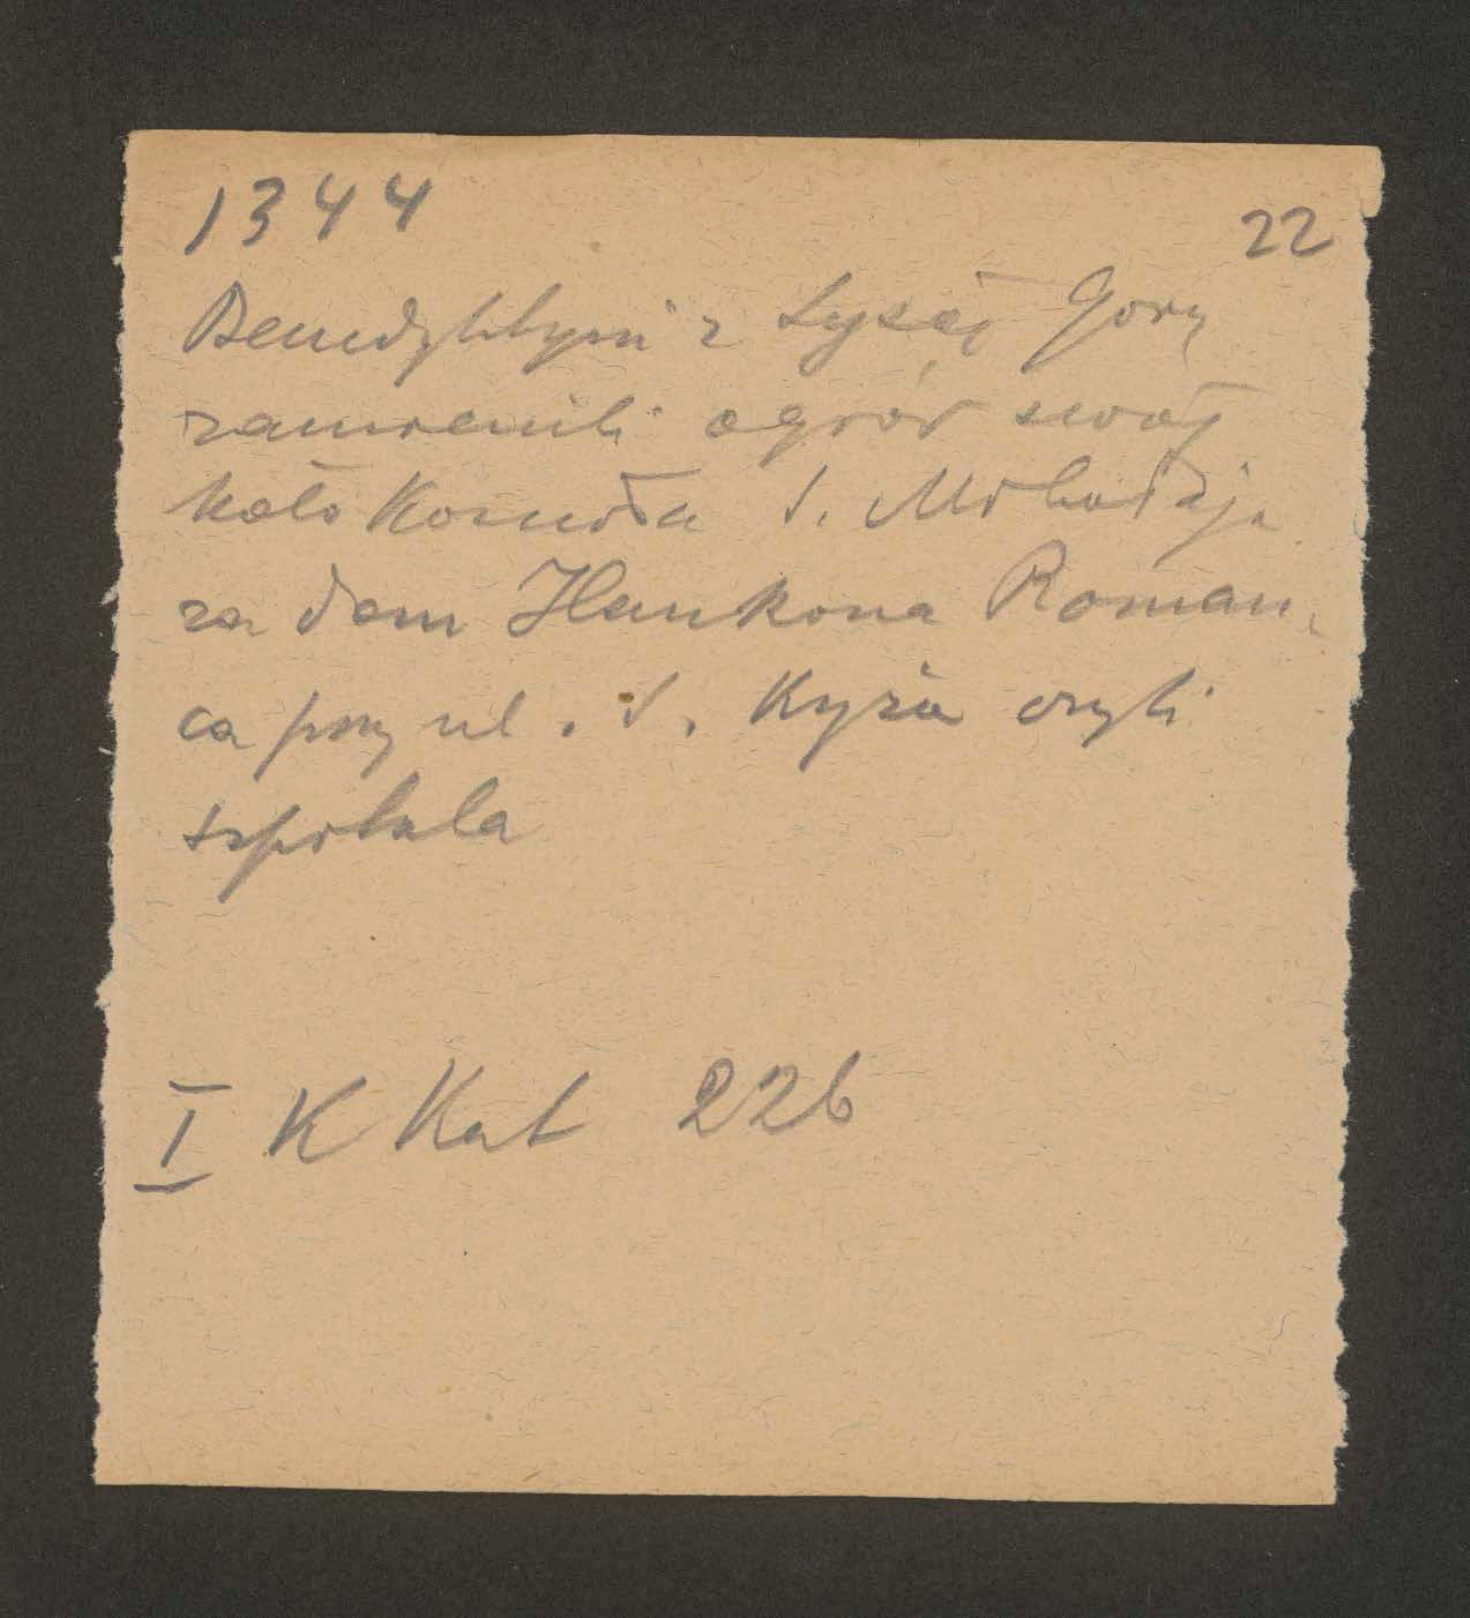 1344
22
Benedyktyni z Łysej Gory
zamienili ogród swój
koło Kościoła S. Mikołaja
za dom Hankona Roman-
ca przy ul. S. Kyża czyli
szpitala
I K Kat 226